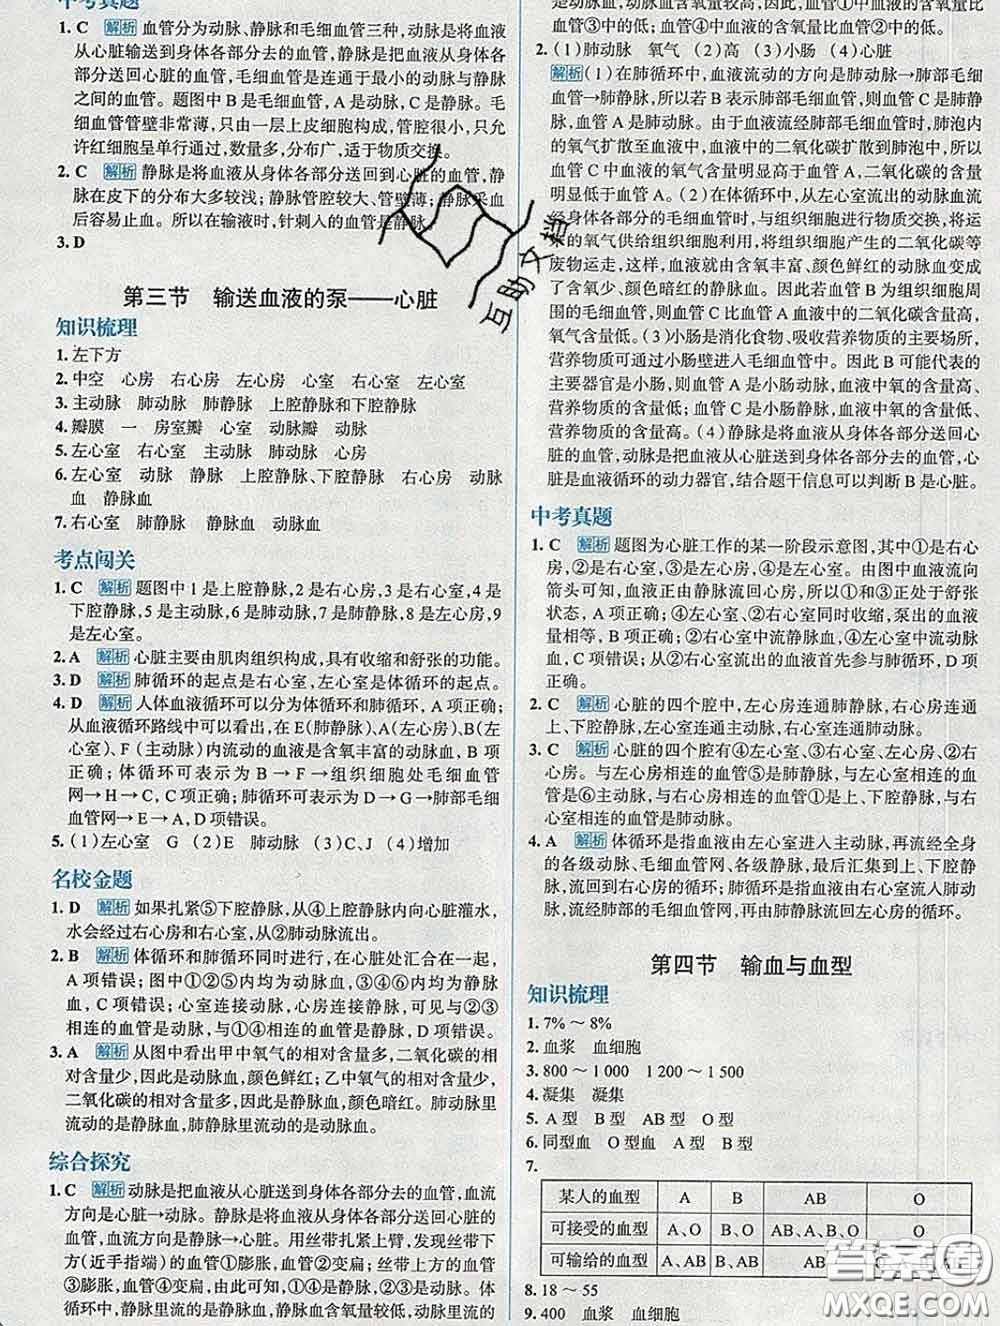 中考真题
1. C 解析 血管分为动脉、静脉和毛细血管三种,动脉是将血液
从心脏输送到身体各部分去的血管,静脉是把血液从身体各
部分送回心脏的血管,毛细血管是连通于最小的动脉与静脉
之间的血管。题图中 B 是毛细血管,A 是动脉,C 是静脉。毛
细血管管壁非常薄,只由一层上皮细胞构成,管腔很小,只允
许红细胞呈单行通过,数量多,分布广,适于物质交换。
2. C 解析 静脉是将血液从身体各部分送回到心脏的血管,静
脉在皮下的分布大多较浅;静脉管腔较大、管壁薄;静脉采血
后容易止血。所以在输液时,针刺入的血管是静脉。
3. D
第三节 输送血液的泵——心脏
知识梳理
1. 左下方
2. 中空 心房 右心房 左心房 心室 右心室 左心室
3. 主动脉 肺动脉 肺静脉 上腔静脉和下腔静脉
4. 瓣膜 一 房室瓣 心室 动脉瓣 动脉
5. 左心室 右心室 主动脉 肺动脉 心房
6. 左心室 动脉 静脉 上腔静脉、下腔静脉 右心房 动脉
血 静脉血
7. 右心室 肺静脉 静脉血 动脉血
考点闯关
1. C 解析 题图中 1 是上腔静脉,2 是右心房,3 是右心室,4 是
下腔静脉,5 是主动脉,6 是肺动脉,7 是肺静脉,8 是左心房,9
是左心室。
2. A 解析 心脏主要由肌肉组织构成,具有收缩和舒张的功能。
3. D 解析 肺循环的起点是右心室,左心室是体循环的起点。
4. D 解析 人体血液循环可以分为体循环和肺循环,A 项正确;
从血液循环路线中可以看出,在 E(肺静脉)、A(左心房)、B(左
心室)、F(主动脉)内流动的血液是含氧丰富的动脉血,B 项
正确;体循环可表示为 B→F→组织细胞处毛细血管
网→H→C,C 项正确;肺循环可表示为 D→G→肺部毛细
血管网→E→A,D 项错误。
5. (1)左心室 G (2)E 肺动脉 (3)C、J (4)增加
名校金题
1. D 解析 如果扎紧⑤下腔静脉,从④上腔静脉内向心脏灌水,
水会经过右心房和右心室,从②肺动脉流出。
2. B 解析 体循环和肺循环同时进行,在心脏处汇合在一起,
A 项错误;图中②③内均为动脉,①④⑤⑥内均为静脉,C
项错误。心室连接动脉,心房连接静脉,可见与②③
相连的血管是动脉,与①④相连的血管是静脉,D 项错误。
3. A 解析 从图中看出甲中氧气的相对含量多,二氧化碳的相
对含量少,因此是动脉血,颜色鲜红;乙中氧气的相对含量少,
二氧化碳的相对含量多,因此是静脉血,颜色暗红。肺动脉里
流动的是静脉血,肺静脉里流动的是动脉血。
综合探究
1. C 解析 动脉是把血液从心脏送到身体各部分去的血管,血流
方向是心脏→动脉。静脉是将血液从身体各部分送回心脏的
血管,血流方向是静脉→心脏。用丝带扎紧上臂,发现丝带下
方(近手指端)的血管①膨胀,血管②变扁;丝带上方的血管
③膨胀,血管④变扁,由此可知,①④是静脉,②③是动脉。体
循环中,静脉里流的是静脉血,静脉血含氧量较低,动脉里流的
是动脉血,动脉血含氧量较高,因此,血管①中血液的含氧量比血
管③中的低,血管④中血液的含氧量比血管②中的低。
2. (1)肺动脉 氧气 (2)高 (3)小肠 (4)心脏
解析 (1)在肺循环中,血液流动的方向是肺动脉→肺部毛细
血管→肺静脉,所以若 B 表示肺部毛细血管,则血管 C 是肺静
脉,血管 A 是肺动脉。由于血液流经肺部毛细血管时,肺泡内
的氧气扩散至血液中,血液中的二氧化碳扩散到肺泡中,所以
血管 C 中血液的氧气含量明显高于血管 A,二氧化碳的含量
明显低于血管 A。(2)在体循环中,从左心室流出的动脉血流
经身体各部分的毛细血管时,与组织细胞进行物质交换,将运
来的氧气供给组织细胞利用,将组织细胞产生的二氧化碳等
废物运走,这样,血液就由含氧丰富、颜色鲜红的动脉血变成
了含氧少、颜色暗红的静脉血。因此若血管 B 为组织细胞周
围的毛细血管,则血管 C 比血管 A 血液中的二氧化碳含量高,
氧气含量低。(3)小肠是消化食物、吸收营养物质的主要场所,
营养物质可通过小肠壁进入毛细血管中。因此 B 可能代表的
主要器官是小肠,则血管 A 是小肠动脉,血液中氧的含量高、
营养物质的含量低;血管 C 是小肠静脉,血液中氧的含量低、
营养物质的含量高。(4)静脉是将血液从身体各部分送回心
脏的血管,动脉是把血液从心脏送到身体各部分去的血管,心
脏是血液循环的动力器官,结合题干信息可以判断 B 是心脏。
中考真题
1. C 解析 题图为心脏工作的某一阶段示意图,其中①是右心
房,②是右心室,③是左心房,④是左心室。由图中血液流向
箭头可知,血液正由静脉流回心房,所以①和③正处于舒张
状态,A 项正确;④左心室、②右心室同时收缩,泵出的血液
量相等,B 项正确;②右心室中流静脉血,④左心室中流动脉
血,C 项错误;从②右心室流出的血液首先参与肺循环,D 项
正确。
2. C 解析 心脏的四个腔中,左心房连通肺静脉,右心房连通
上、下腔静脉,左心室连通主动脉,右心室连通肺动脉。
3. C 解析 心脏的四个腔有④左心室、③右心室、左心房、②右
心房。与左心房相连的血管⑤是肺静脉,与左心室相连的血
管是⑥主动脉,与右心房相连的血管①是上、下腔静脉,与右
心室相连的血管是肺动脉。
4. A 解析 体循环是指血液由左心室进入主动脉,再流经全身
的各级动脉、毛细血管网、各级静脉,最后汇集到上、下腔静
脉,流回到右心房的循环;肺循环是指血液由右心室流入肺动
脉,流经肺部的毛细血管网,再由肺静脉流回左心房的循环。
第四节 输血与血型
知识梳理
1. 7%~8%
2. 血浆 血细胞
3. 800~1 000 1 200~1 500
4. 凝集 凝集
5. A 型 B 型 AB 型 O 型
6. 同型血 O 型血 A 型 B 型
7.
某人的血型 A B AB O
可接受的血型 A、O B、O AB、A、B、O O
可输给的血型 A、AB B、AB AB
8. 18~55
9. 400 血浆 血细胞
互助文档
答案圈
MXQE.COM